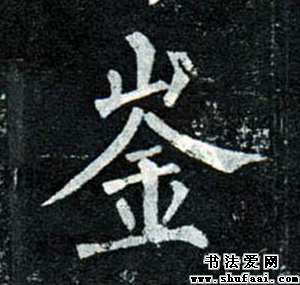 崟
书法爱网
www.shufaai.com